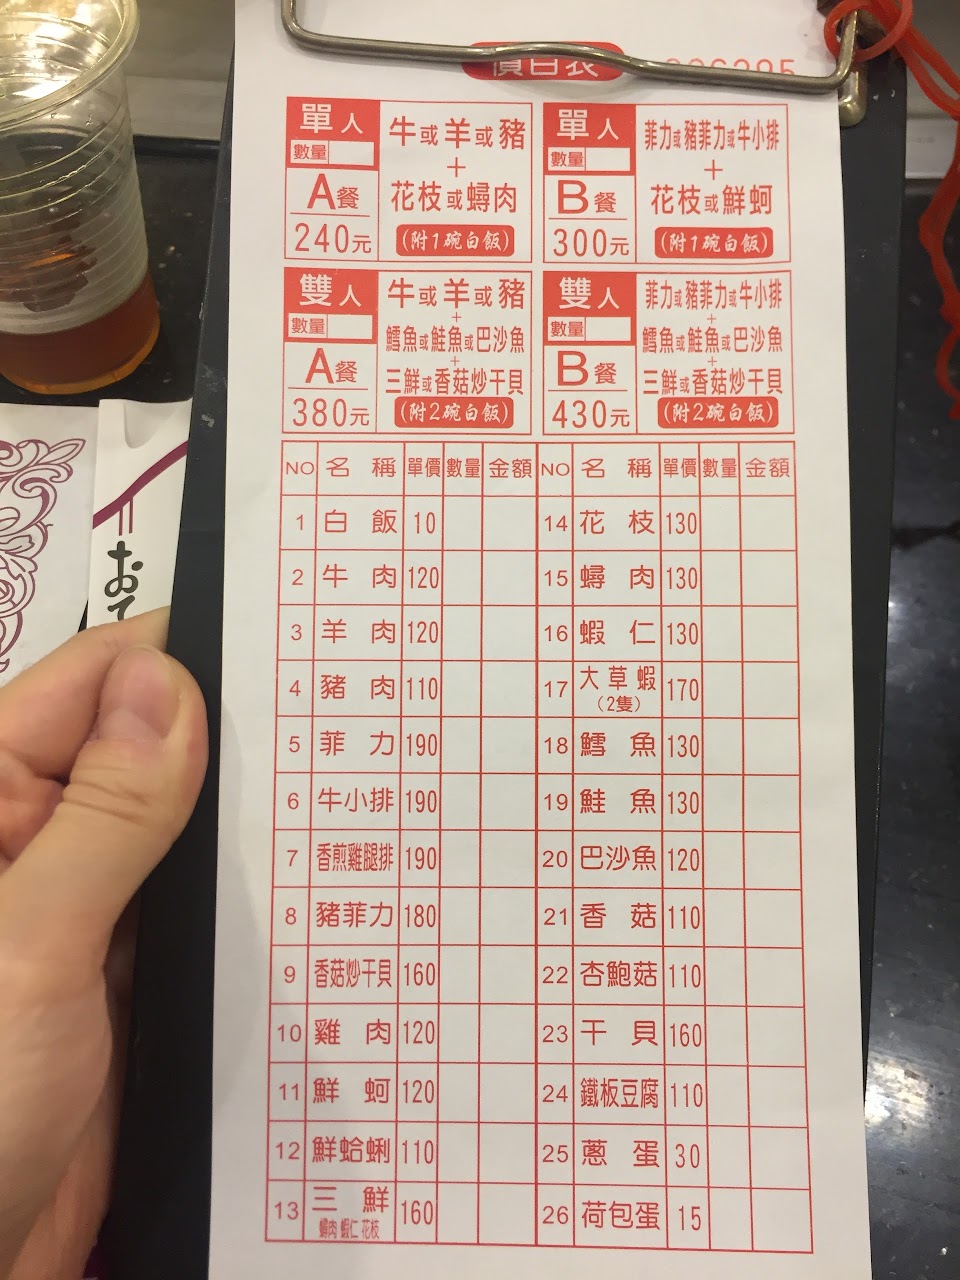 價目表
單人
數量
A餐
240元
牛或羊或豬
+
花枝或蟳肉
(附1碗白飯)
單人
數量
B餐
300元
菲力或豬菲力或牛小排
+
花枝或鮮蚵
(附1碗白飯)
雙人
數量
A餐
380元
牛或羊或豬
+
鱈魚或鮭魚或巴沙魚
+
三鮮或香菇炒干貝
(附2碗白飯)
雙人
數量
B餐
430元
菲力或豬菲力或牛小排
+
鱈魚或鮭魚或巴沙魚
+
三鮮或香菇炒干貝
(附2碗白飯)
NO 名稱 單價 數量 金額
1 白飯 10
2 牛肉 120
3 羊肉 120
4 豬肉 110
5 菲力 190
6 牛小排 190
7 香煎雞腿排 190
8 豬菲力 180
9 香菇炒干貝 160
10 雞肉 120
11 鮮蚵 120
12 鮮蛤蜊 110
13 三鮮 160
蟳肉 蝦仁 花枝
NO 名稱 單價 數量 金額
14 花枝 130
15 蟳肉 130
16 蝦仁 130
17 大草蝦 170
(2隻)
18 鱈魚 130
19 鮭魚 130
20 巴沙魚 120
21 香菇 110
22 杏鮑菇 110
23 干貝 160
24 鐵板豆腐 110
25 蔥蛋 30
26 荷包蛋 15
おて